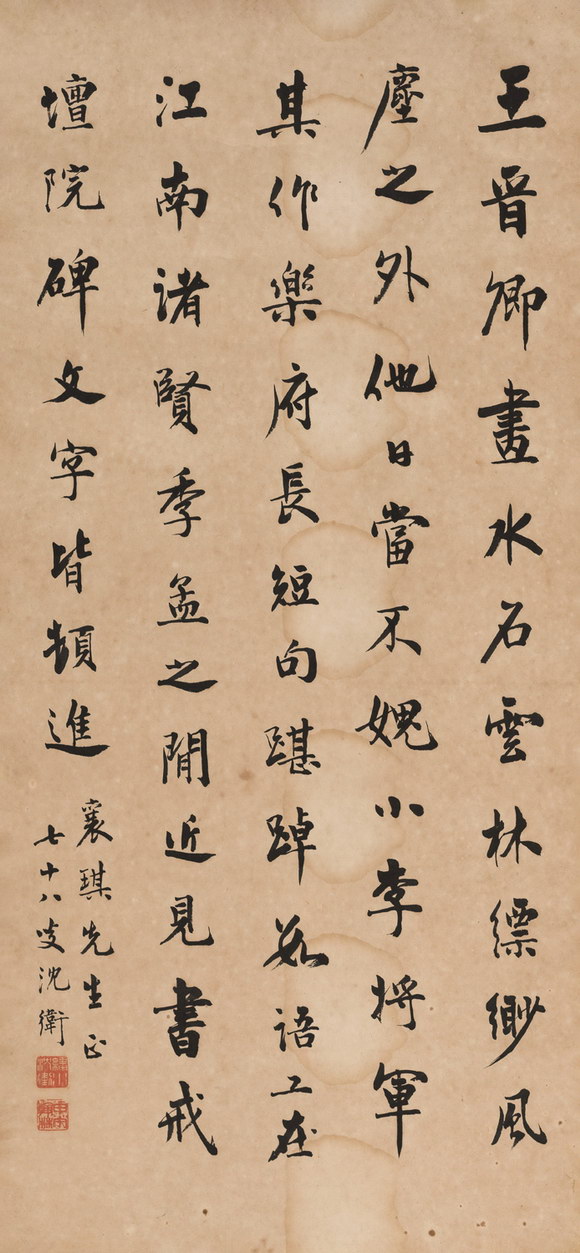 王晋卿畫水石雲林縹緲風
塵之外他日當不媿小李將軍
其作樂府長短句踸踔語工在
江南諸賢季孟之閒近見書戒
壇院碑文字皆頓進
襄琪先生正
七十八叟沈衛